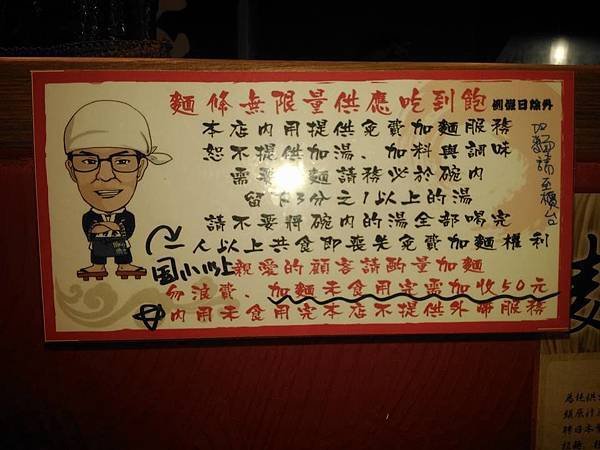 麵條無限量供應吃到飽 例假日除外
本店內用提供免費加麵服務
恕不提供加湯、加料與調味
需要加麵請務必於碗內
留下3分之1以上的湯
請不要將碗內的湯全部喝完
二人以上共食即喪失免費加麵權利
国小以上
親愛的顧客請酌量加麵
勿浪費、加麵未食用完需加收50元
內用未食用完本店不提供外帶服務
加麵請至櫃台